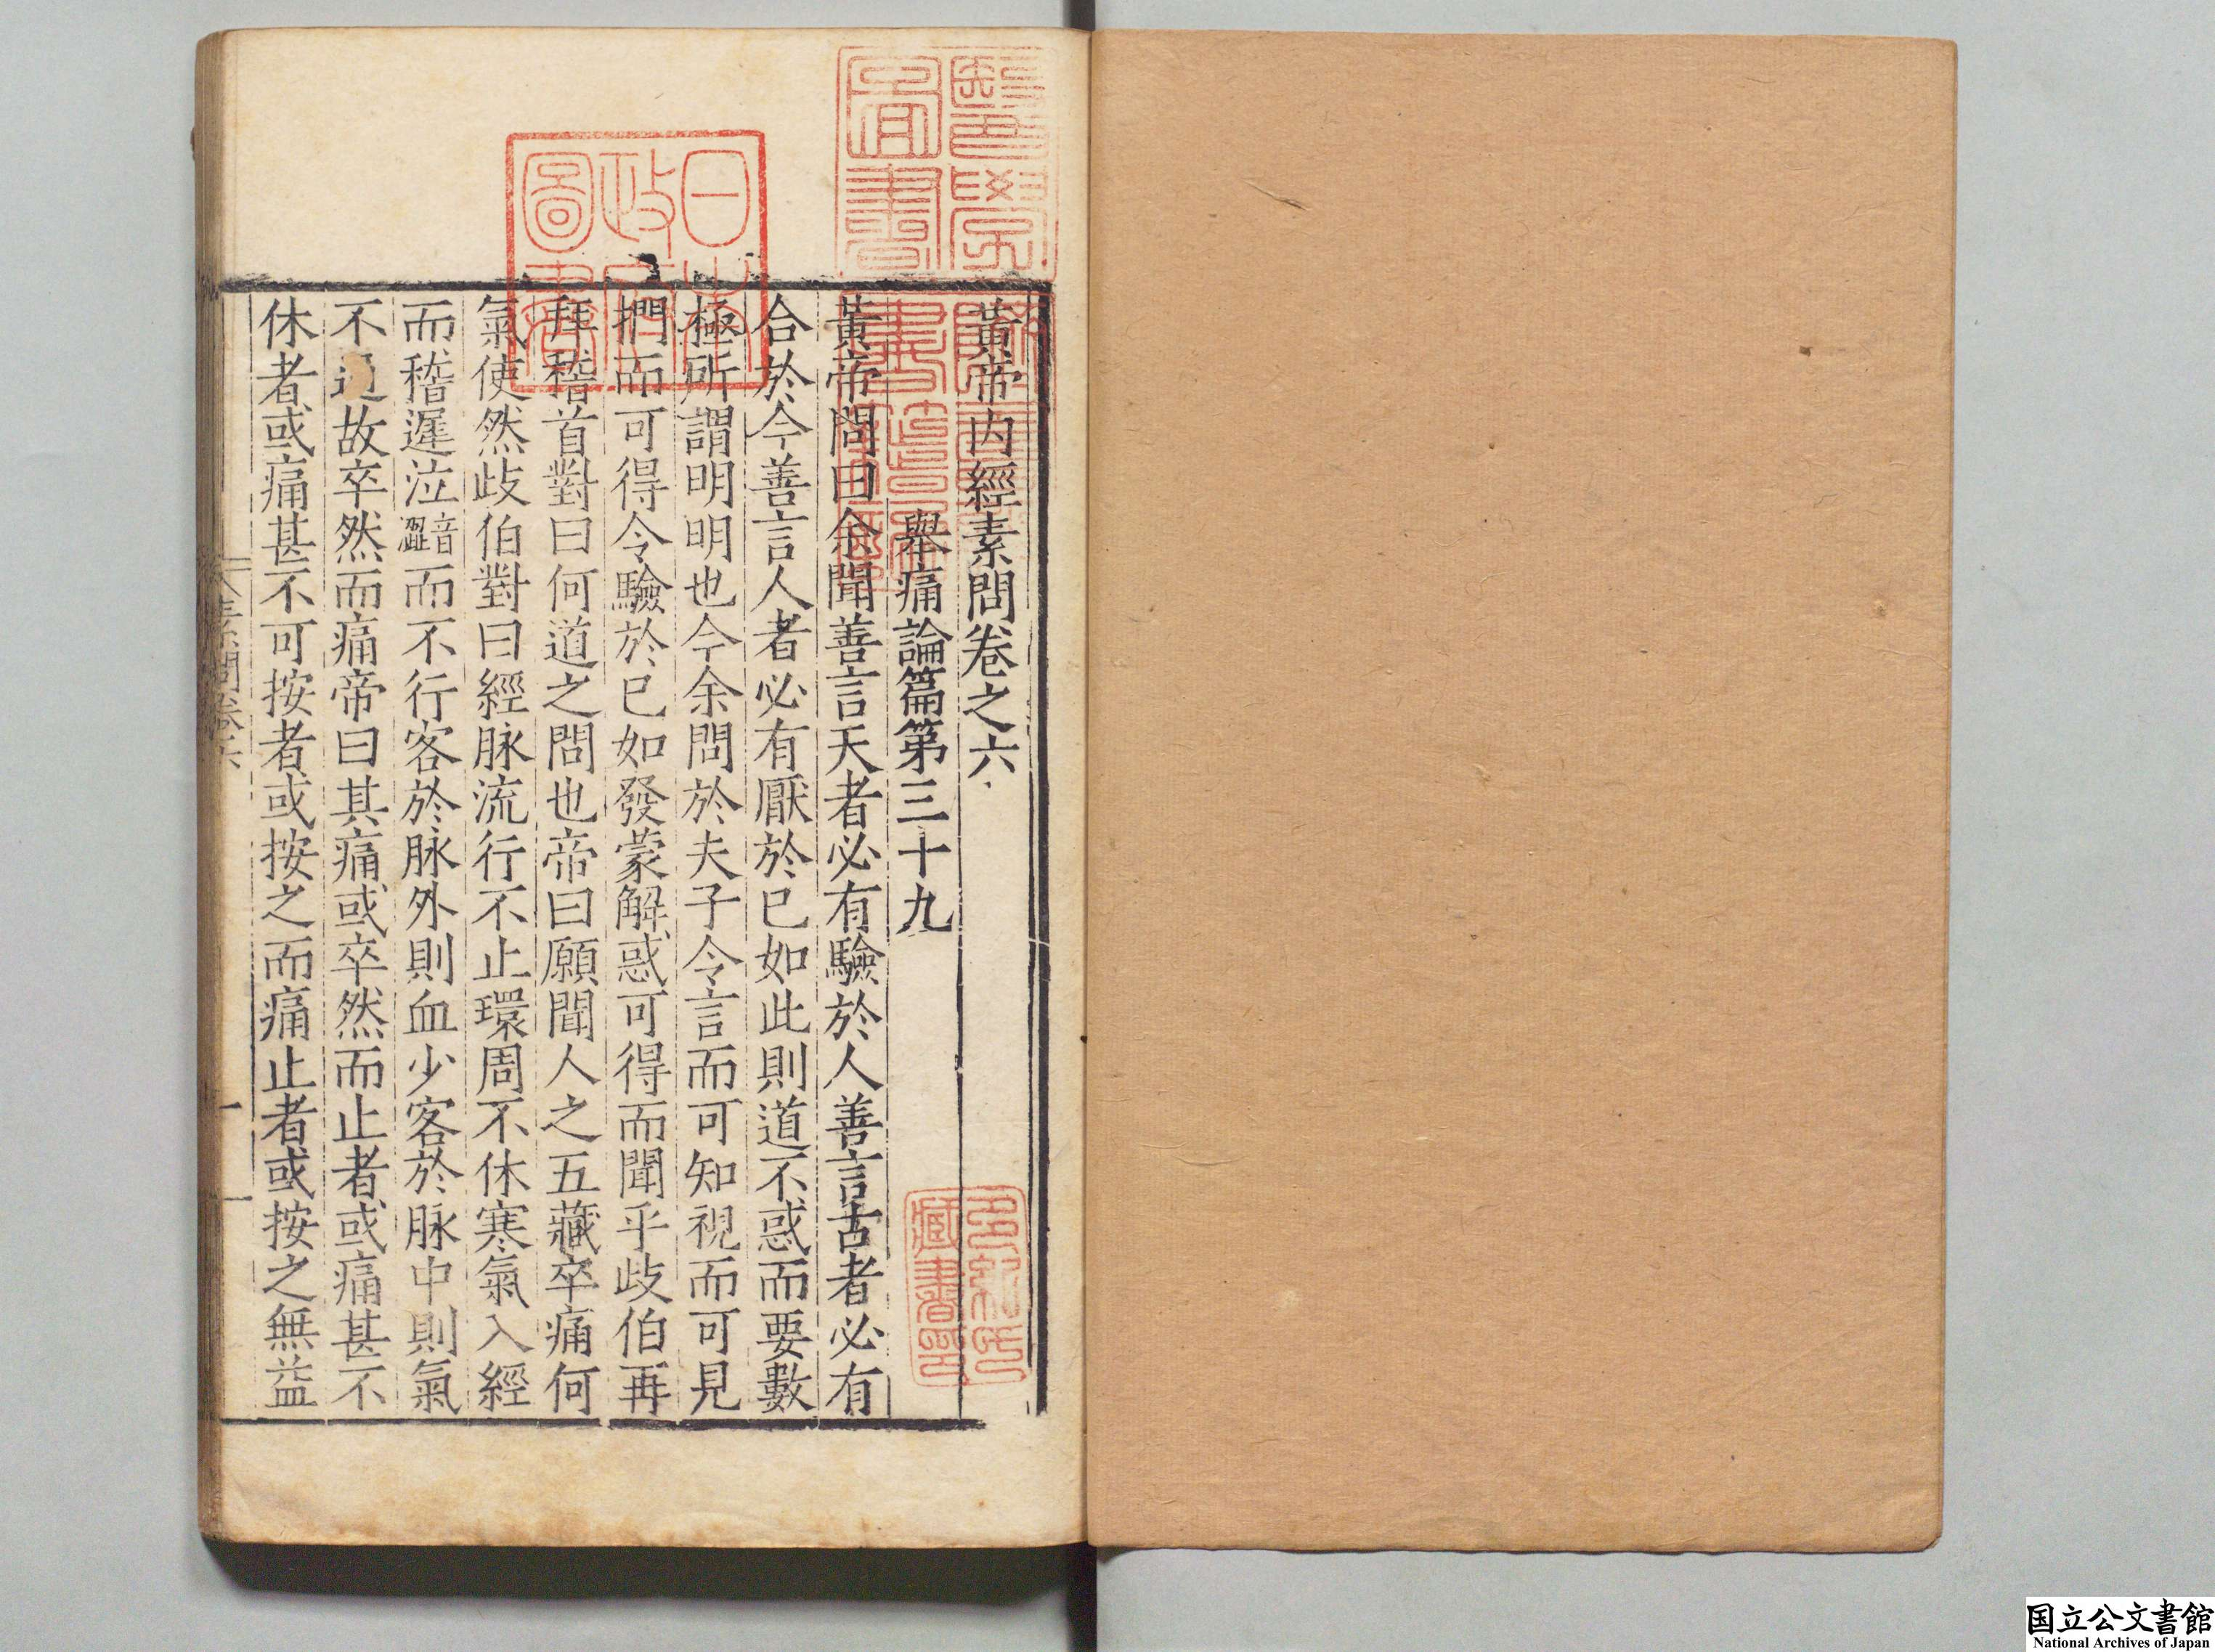 黃帝內經素問卷之六
舉痛論篇第三十九
黃帝問曰余聞善言天者必有驗於人善言古者必有
合於今善言人者必有厭於已如此則道不惑而要數
極所謂明明也今余問於夫子令言而可知視而可見
捫而可得令驗於已如發蒙解惑可得而聞乎歧伯再
拜稽首對曰何道之問也帝曰願聞人之五藏卒痛何
氣使然歧伯對曰經脉流行不止環周不休寒氣入經
而稽遲泣音澀而不行客於脉外則血少客於脉中則氣
不通故卒然而痛帝曰其痛或卒然而止者或痛甚不
休者或痛甚不可按者或按之而痛止者或按之無益
素問卷六
一
醫學圖書
日本政府圖書
多紀氏藏書印
国立公文書館
National Archives of Japan